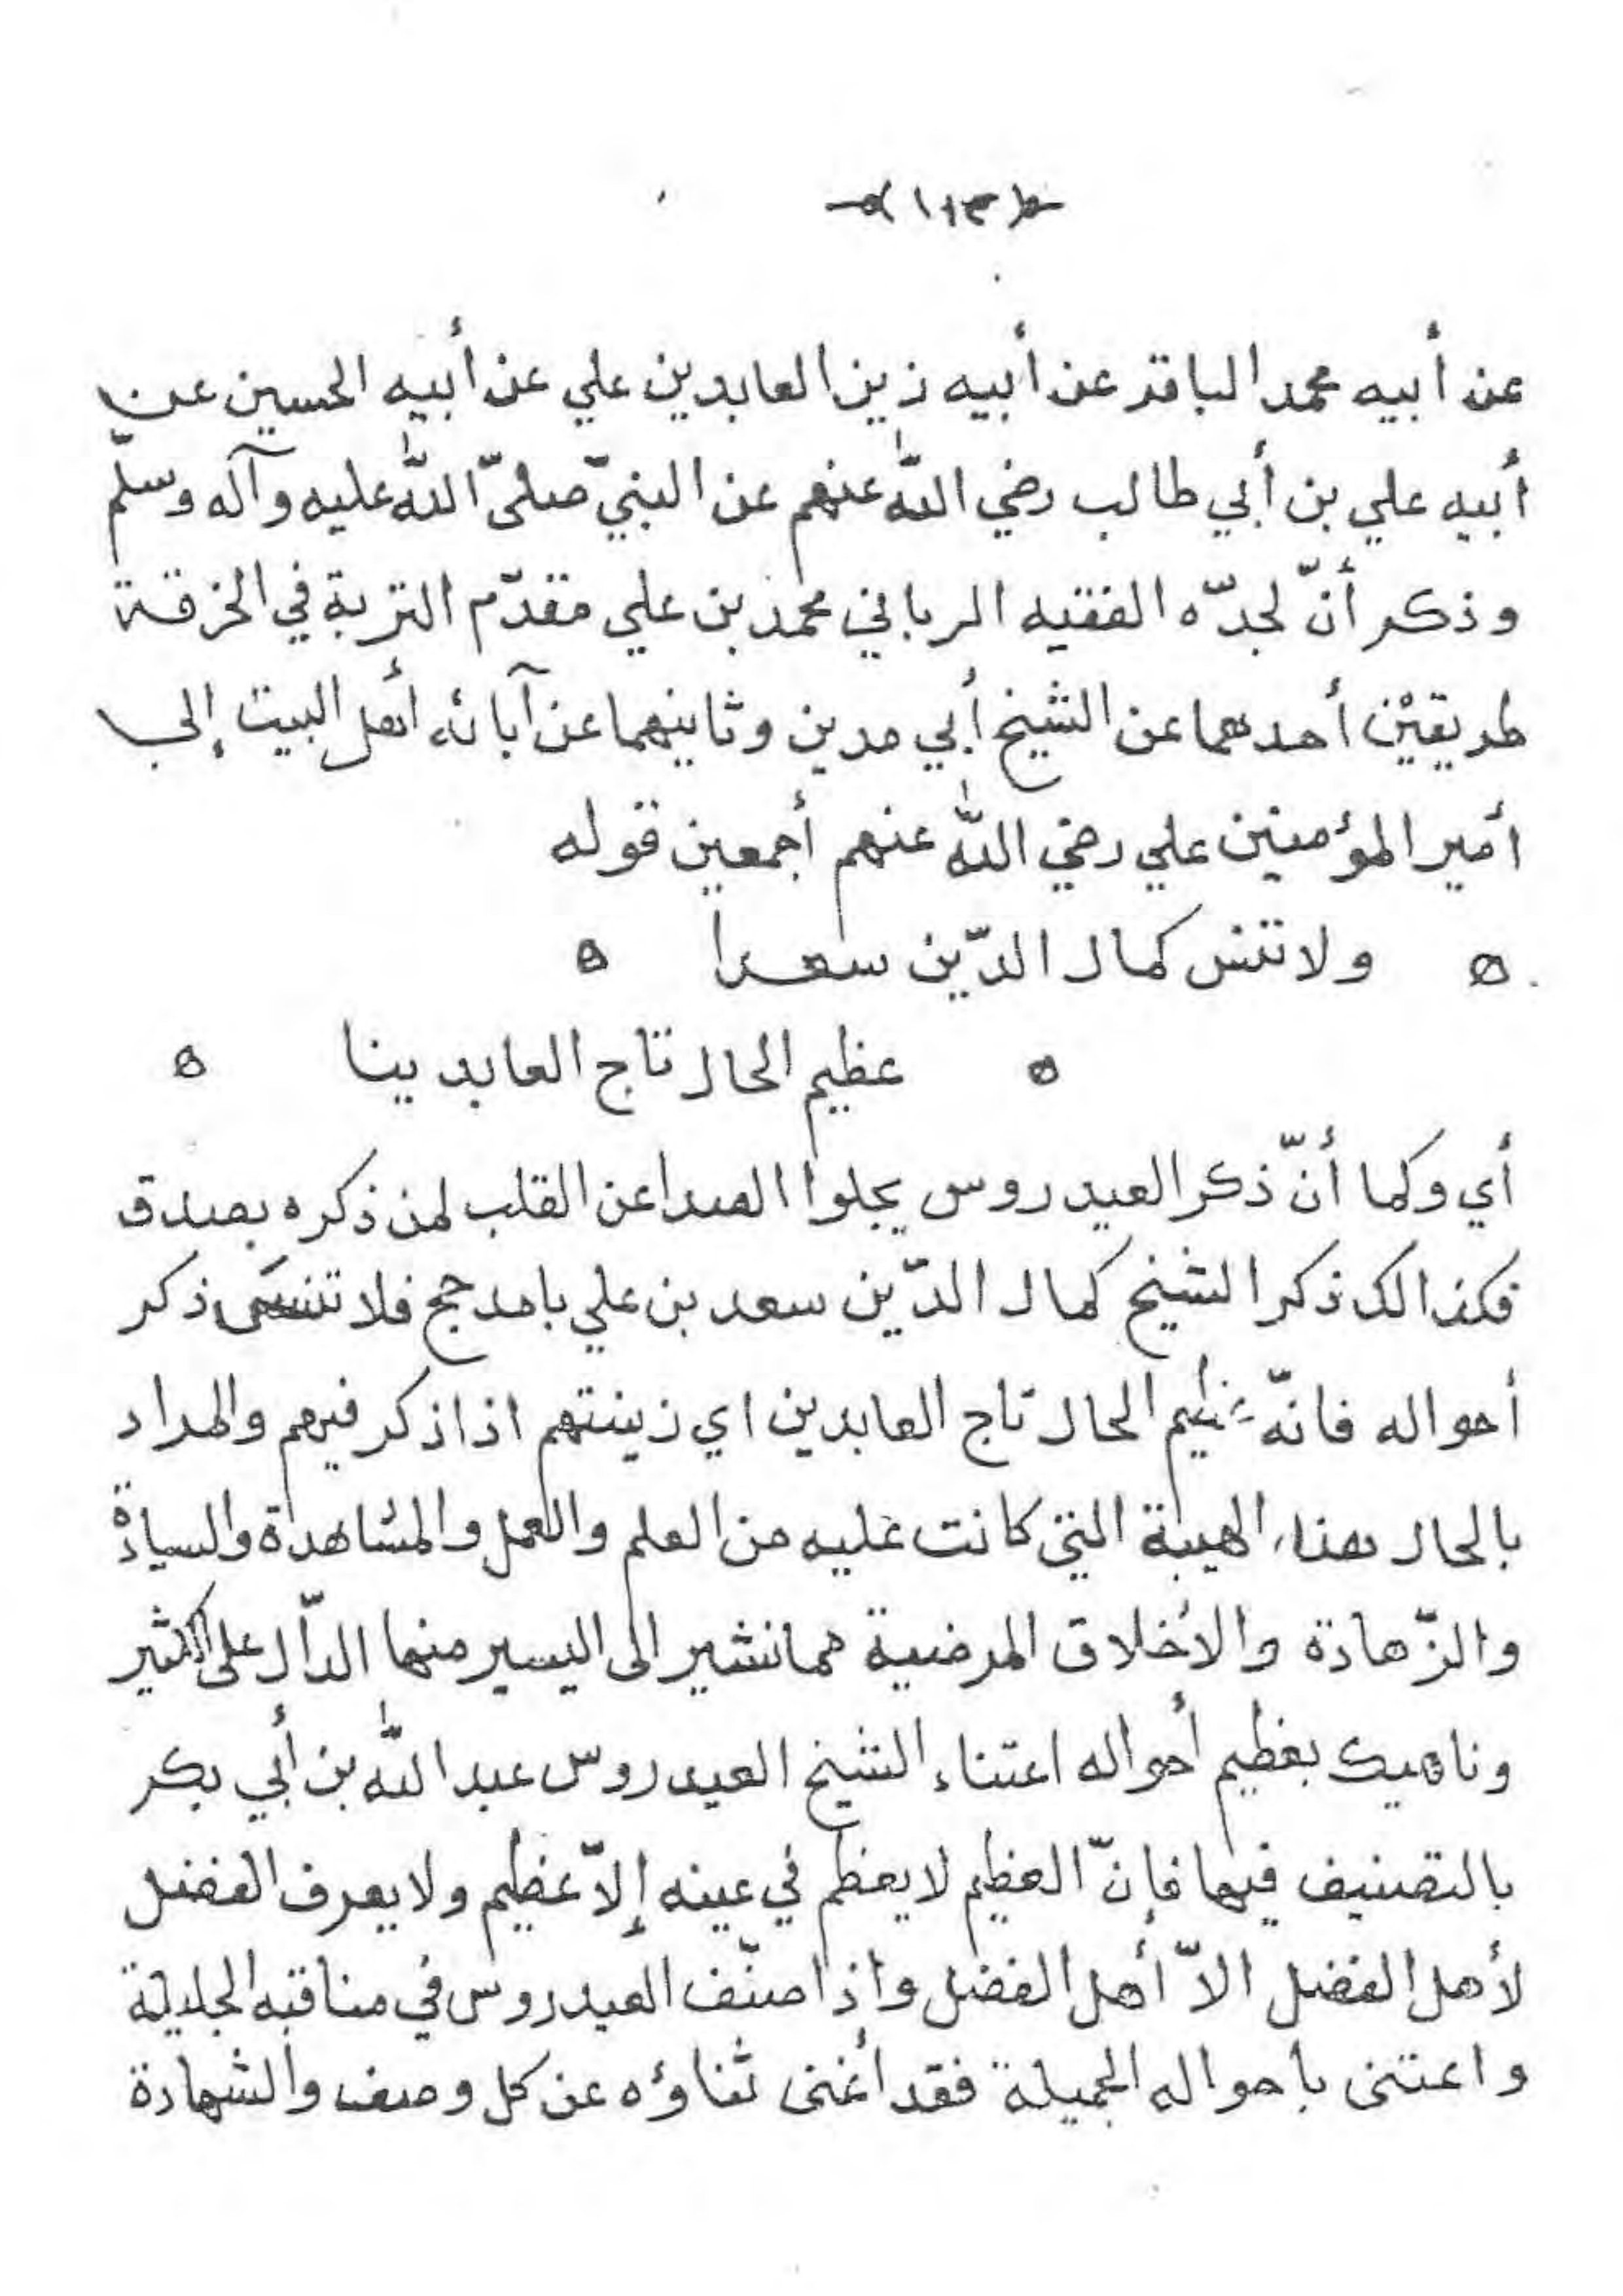 (١١٣)
عن أبيه محمد الباقر عن أبيه زين العابدين علي عن أبيه الحسين عن
أبيه علي بن أبي طالب رضي اللّٰه عنهم عن النبيّ صلىّ اللّٰه عليه وآله وسلّم
وذكر أنّ لجدّه الفقيه الرباني محمد بن علي مقدّم التربة في الخرقة
طريقيْن أحدهما عن الشيخ أبي مدين وثانيهما عن آبائه أهل البيت إلى
أمير المؤمنين علي رضي اللّٰه عنهم أجمعين قوله
ه ولا تنس كمال الدّين سعدا ه
ه عظيم الحال تاج العابدينا ه
أي وكما أنّ ذكر العيدروس يجلوا الصدا عن القلب لمن ذكره بصدق
فكذالك ذكر الشيخ كمال الدّين سعد بن علي بامدحج فلا تنسَى ذكر
أحواله فانّه عظيم الحال تاج العابدين اي زينتهم اذا ذكر فيهم والمراد
بالحال هنا الهيبة التي كانت عليه من العلم والعمل والمشاهدة والسيادة
والزّهادة والأخلاق المرضية مما نشير الى اليسير منها الدّال على الكثير
وناهيك بعظيم أحواله اعتناء الشيخ العيدروس عبد اللّٰه بن أبي بكر
بالتصنيف فيها فإنّ العظيم لا يعظم في عينه إلاّ عظيم ولا يعرف الفضل
لأهل الفضل الاّ أهل الفضل واذا صنّف العيدروس في مناقبه الجليلة
واعتنى بأحواله الجميلة فقد أغنى ثناؤه عن كل وصف والشهادة